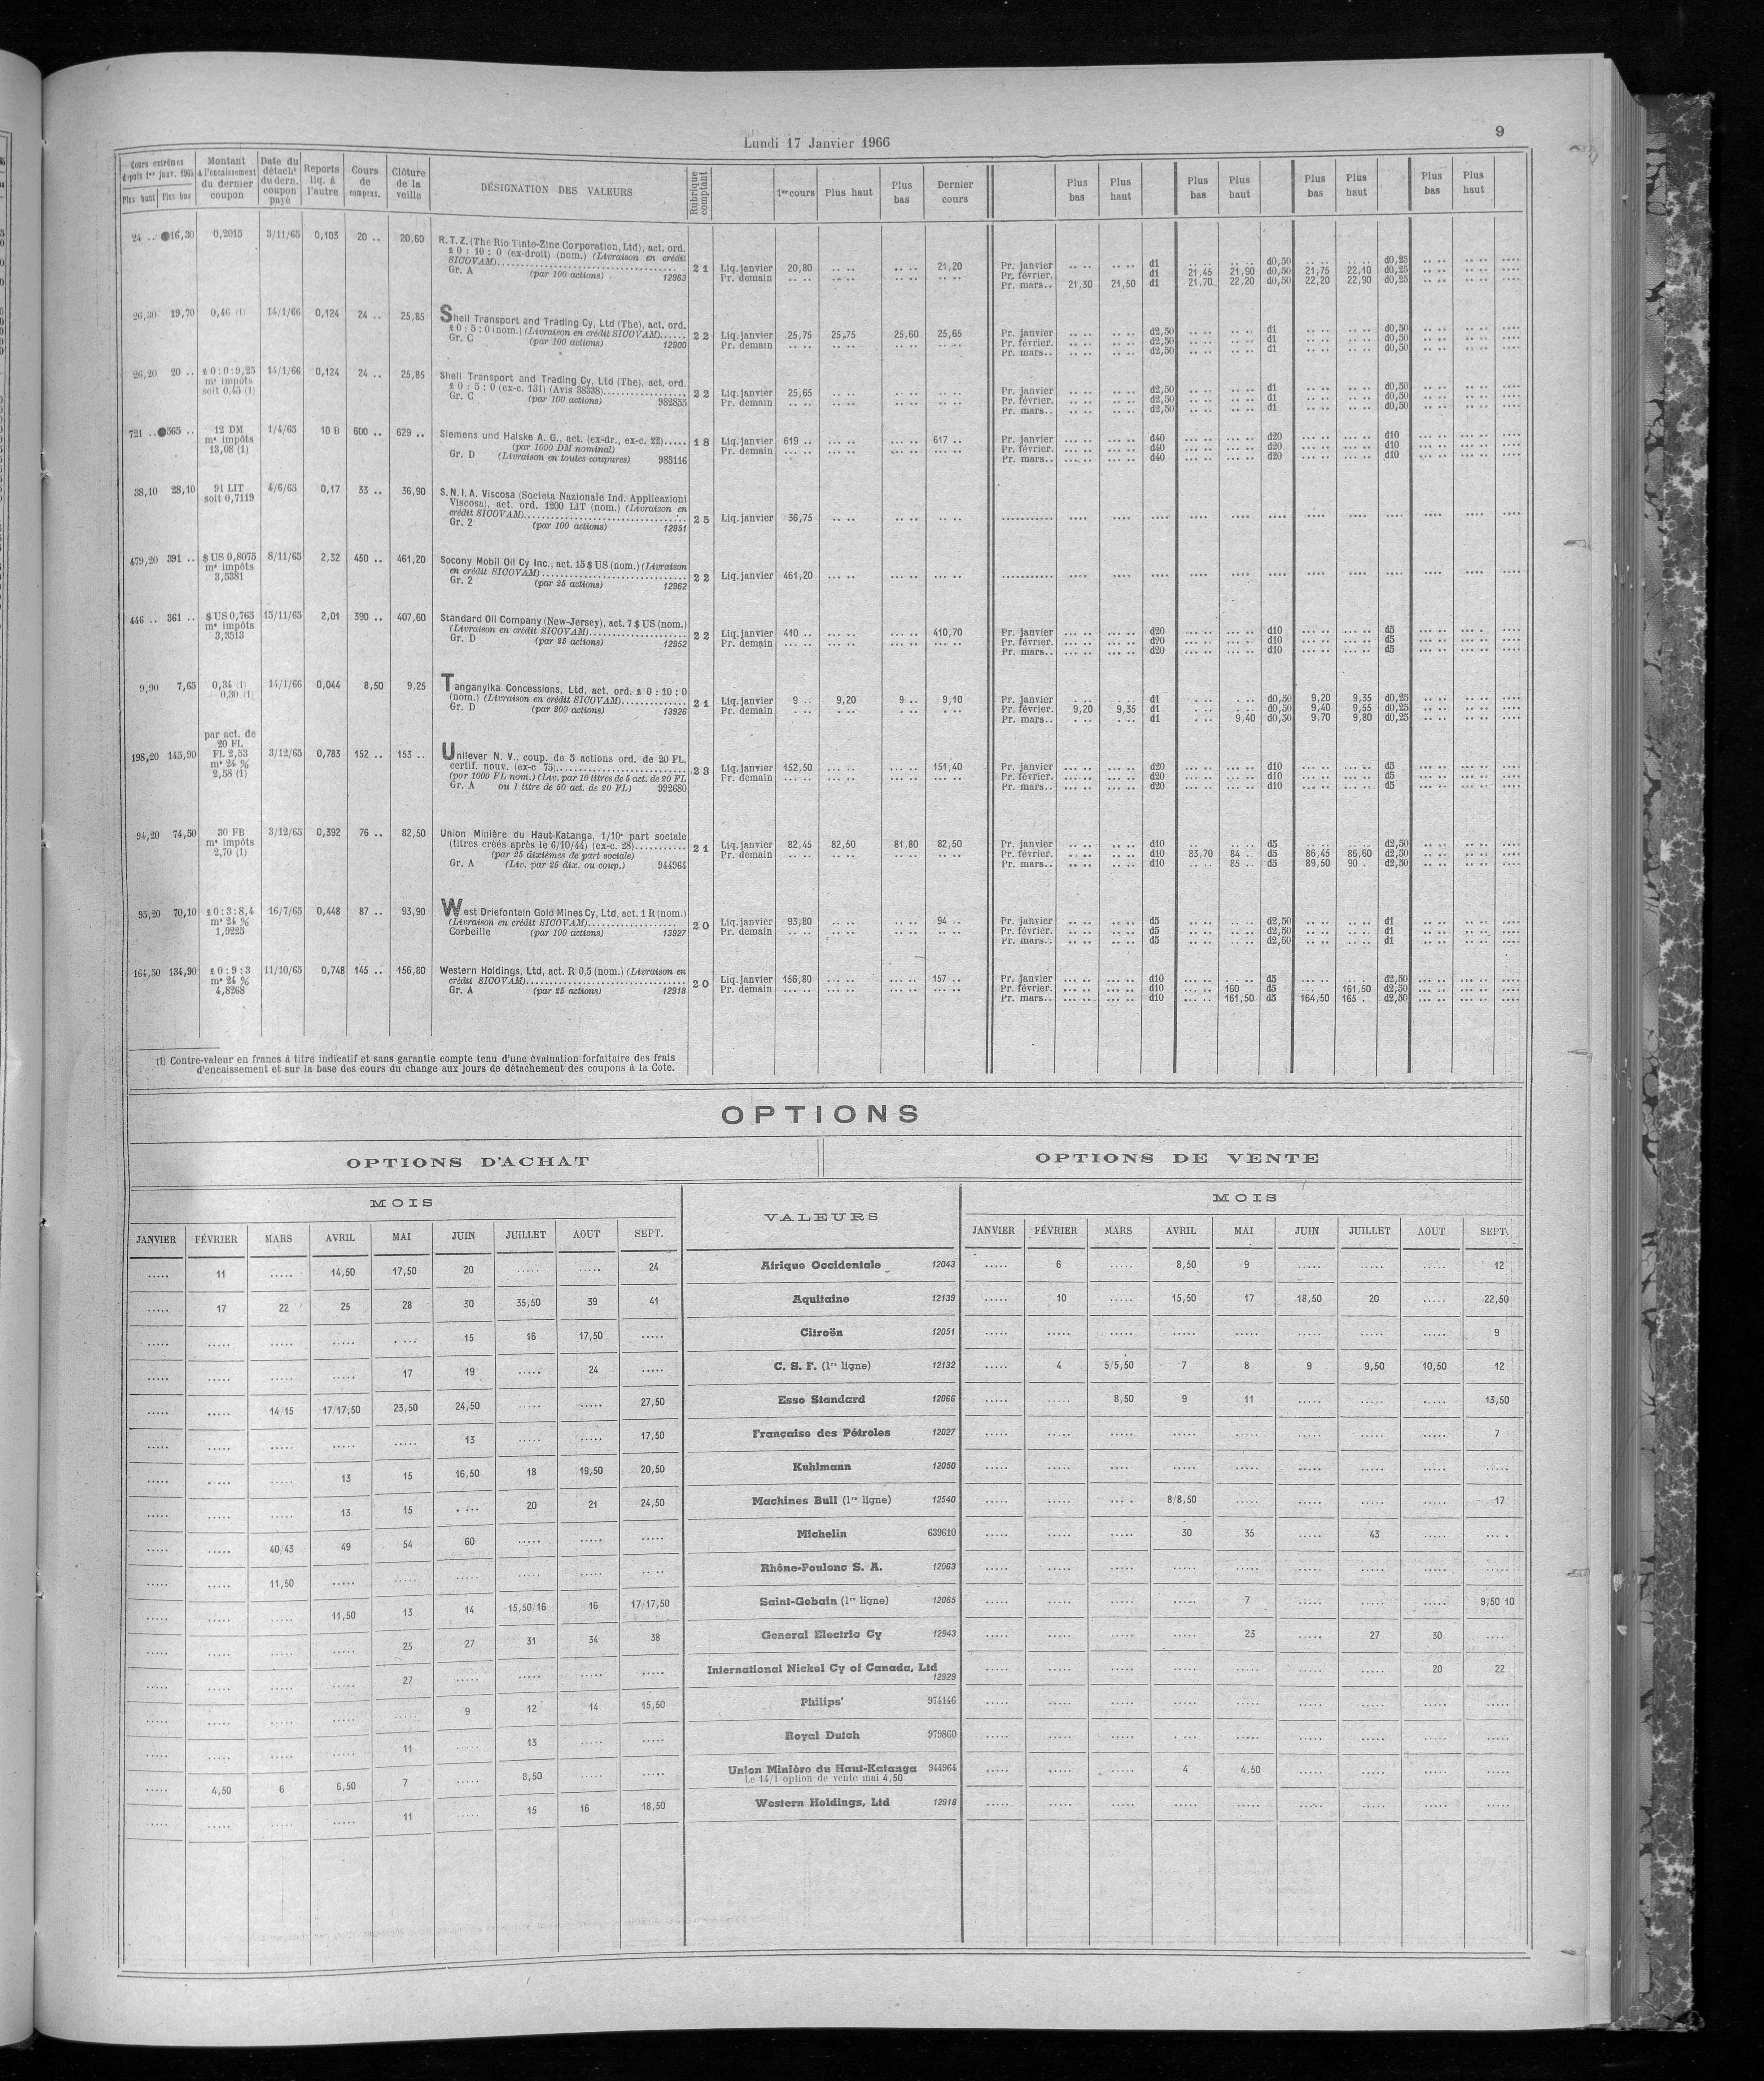 Lundi 17 Janvier 1966
9
Cours extrêmes depuis 1er janv. 1965 Plus haut Plus bas | Montant à l'encaissement du dernier coupon | Date du détacht du dern. coupon payé | Reports liq. à l'autre | Cours de compens. | Clôture de la veille | DÉSIGNATION DES VALEURS | Rubrique comptant | 1er cours | Plus haut | Plus bas | Dernier cours | Plus bas | Plus haut | Plus bas | Plus haut | Plus bas | Plus haut | Plus bas | Plus haut
24 .. ●16,30 0,2015 3/11/65 0,103 20 .. 20,60 R.T.Z. (The Rio Tinto-Zinc Corporation, Ltd), act. ord.
£ 0 : 10 : 0 (ex-droit) (nom.) (Livraison en crédit
SICOVAM) 21 Liq. janvier 20,80 .. .. .. .. 21,20 Pr. janvier .. .. .. .. d1 .. .. .. .. d0,50 .. .. .. .. d0,25
Gr. A (par 100 actions) 12963 Pr. demain .. .. .. .. .. .. .. .. Pr. février. .. .. .. .. d1 21,45 21,90 d0,50 21,75 22,10 d0,25
Pr. mars.. 21,30 21,50 d1 21,70 22,20 d0,50 22,20 22,90 d0,25
26,30 19,70 0,46 (1) 14/1/66 0,124 24 .. 25,85 Shell Transport and Trading Cy, Ltd (The), act. ord.
£ 0 : 5 : 0 (nom.) (Livraison en crédit SICOVAM) 22 Liq. janvier 25,75 25,75 25,60 25,65 Pr. janvier .. .. .. .. d2,50 .. .. .. .. d1 .. .. .. .. d0,50
Gr. C (par 100 actions) 12900 Pr. demain .. .. .. .. .. .. .. .. Pr. février. .. .. .. .. d2,50 .. .. .. .. d1 .. .. .. .. d0,50
Pr. mars.. .. .. .. .. d2,50 .. .. .. .. d1 .. .. .. .. d0,50
26,20 20 .. £ 0 : 0 : 9,25 14/1/66 0,124 24 .. 25,85 Shell Transport and Trading Cy, Ltd (The), act. ord.
ms impôts £ 0 : 5 : 0 (ex-c. 131) (Avis 38338) 22 Liq. janvier 25,65 .. .. .. .. .. .. Pr. janvier .. .. .. .. d2,50 .. .. .. .. d1 .. .. .. .. d0,50
soit 0,45 (1) Gr. C (par 100 actions) 982855 Pr. demain .. .. .. .. .. .. .. .. Pr. février. .. .. .. .. d2,50 .. .. .. .. d1 .. .. .. .. d0,50
Pr. mars.. .. .. .. .. d2,50 .. .. .. .. d1 .. .. .. .. d0,50
721 .. ●565 .. 12 DM 1/4/65 10 B 600 .. 629 .. Siemens und Halske A. G., act. (ex-dr., ex-c. 22) 18 Liq. janvier 619 .. ... .. ... .. 617 .. Pr. janvier ... .. ... .. d40 ... .. ... .. d20 ... .. ... .. d10
ms impôts (par 1000 DM nominal) Pr. demain ... .. ... .. ... .. ... .. Pr. février. ... .. ... .. d40 ... .. ... .. d20 ... .. ... .. d10
13,08 (1) Gr. D (Livraison en toutes coupures) 983116 Pr. mars.. ... .. ... .. d40 ... .. ... .. d20 ... .. ... .. d10
38,10 28,10 91 LIT 4/6/65 0,17 33 .. 36,90 S. N. I. A. Viscosa (Societa Nazionale Ind. Applicazioni
soit 0,7119 Viscosa), act. ord. 1200 LIT (nom.) (Livraison en
crédit SICOVAM) 25 Liq. janvier 36,75 .. .. .. .. .. ..
Gr. 2 (par 100 actions) 12951
479,20 391 .. $ US 0,8075 8/11/65 2,32 450 .. 461,20 Socony Mobil Oil Cy Inc., act. 15 $ US (nom.) (Livraison
ms impôts en crédit SICOVAM) 22 Liq. janvier 461,20 ... .. ... .. ... ..
3,5381 Gr. 2 (par 25 actions) 12962
446 .. 361 .. $ US 0,765 15/11/65 2,01 390 .. 407,60 Standard Oil Company (New-Jersey), act. 7 $ US (nom.)
ms impôts (Livraison en crédit SICOVAM) 22 Liq. janvier 410 .. ... .. ... .. 410,70 Pr. janvier ... .. ... .. d20 ... .. ... .. d10 ... .. ... .. d5
3,3513 Gr. D (par 25 actions) 12952 Pr. demain ... .. ... .. ... .. ... .. Pr. février. ... .. ... .. d20 ... .. ... .. d10 ... .. ... .. d5
Pr. mars.. ... .. ... .. d20 ... .. ... .. d10 ... .. ... .. d5
9,90 7,65 0,34 (1) 14/1/66 0,044 8,50 9,25 Tanganyika Concessions, Ltd, act. ord. £ 0 : 10 : 0
0,30 (1) (nom.) (Livraison en crédit SICOVAM) 21 Liq. janvier 9 .. 9,20 9 .. 9,10 Pr. janvier . .. . .. d1 . .. . .. d0,50 9,20 9,35 d0,25
Gr. D (par 200 actions) 13926 Pr. demain . .. . .. . .. . .. Pr. février. 9,20 9,35 d1 . .. . .. d0,50 9,40 9,55 d0,25
Pr. mars.. . .. . .. d1 . .. 9,40 d0,50 9,70 9,80 d0,25
par act. de
20 FL
198,20 145,90 FL 2,53 3/12/65 0,783 152 .. 153 .. Unilever N. V., coup. de 5 actions ord. de 20 FL,
ms 24 % certif. nouv. (ex-c 75) 23 Liq. janvier 152,50 ... .. ... .. 151,40 Pr. janvier ... .. ... .. d20 ... .. ... .. d10 ... .. ... .. d5
2,58 (1) (por 1000 FL nom.) (Liv. par 10 titres de 5 act. de 20 FL Pr. demain ... .. ... .. ... .. ... .. Pr. février. ... .. ... .. d20 ... .. ... .. d10 ... .. ... .. d5
Gr. A ou 1 titre de 50 act. de 20 FL) 992680 Pr. mars.. ... .. ... .. d20 ... .. ... .. d10 ... .. ... .. d5
94,20 74,50 30 FB 3/12/65 0,392 76 .. 82,50 Union Minière du Haut-Katanga, 1/10e part sociale
ms impôts (titres créés après le 6/10/44) (ex-c. 28) 21 Liq. janvier 82,45 82,50 81,80 82,50 Pr. janvier .. .. .. .. d10 .. .. .. .. d5 .. .. .. .. d2,50
2,70 (1) (par 25 dixièmes de part sociale) Pr. demain .. .. .. .. .. .. .. .. Pr. février. .. .. .. .. d10 83,70 84 .. d5 86,45 86,60 d2,50
Gr. A (Liv. par 25 dix. ou coup.) 944964 Pr. mars.. .. .. .. .. d10 .. .. 85 .. d5 89,50 90 . d2,50
95,20 70,10 £ 0 : 3 : 8,4 16/7/65 0,448 87 .. 93,90 West Driefontein Gold Mines Cy, Ltd, act. 1 R (nom.)
ms 24 % (Livraison en crédit SICOVAM) 20 Liq. janvier 93,80 .. .. .. .. 94 .. Pr. janvier .. .. .. .. d5 .. .. .. .. d2,50 .. .. .. .. d1
1,9225 Corbeille (par 100 actions) 13927 Pr. demain .. .. .. .. .. .. .. .. Pr. février. .. .. .. .. d5 .. .. .. .. d2,50 .. .. .. .. d1
Pr. mars.. .. .. .. .. d5 .. .. .. .. d2,50 .. .. .. .. d1
164,50 134,90 £ 0 : 9 : 3 11/10/65 0,748 145 .. 156,80 Western Holdings, Ltd, act. R 0,5 (nom.) (Livraison en
ms 24 % crédit SICOVAM) 20 Liq. janvier 156,80 ... .. ... .. 157 .. Pr. janvier ... .. ... .. d10 ... .. ... .. d5 ... .. ... .. d2,50
4,8268 Gr. A (par 25 actions) 12918 Pr. demain ... .. ... .. ... .. ... .. Pr. février. ... .. ... .. d10 ... .. 160 d5 ... .. 161,50 d2,50
Pr. mars.. ... .. ... .. d10 ... .. 161,50 d5 164,50 165 . d2,50
(1) Contre-valeur en francs à titre indicatif et sans garantie compte tenu d'une évaluation forfaitaire des frais
d'encaissement et sur la base des cours du change aux jours de détachement des coupons à la Cote.
OPTIONS
OPTIONS D'ACHAT
OPTIONS DE VENTE
MOIS VALEURS MOIS
JANVIER FÉVRIER MARS AVRIL MAI JUIN JUILLET AOUT SEPT. JANVIER FÉVRIER MARS AVRIL MAI JUIN JUILLET AOUT SEPT.
..... 11 ..... 14,50 17,50 20 ..... ..... 24 Afrique Occidentale 12043 ..... 6 ..... 8,50 9 ..... ..... ..... 12
..... 17 22 25 28 30 35,50 39 41 Aquitaine 12139 ..... 10 ..... 15,50 17 18,50 20 ..... 22,50
..... ..... ..... ..... ..... 15 16 17,50 ..... Citroën 12051 ..... ..... ..... ..... ..... ..... ..... ..... 9
..... ..... ..... ..... 17 19 ..... 24 ..... C. S. F. (1re ligne) 12132 ..... 4 5/5,50 7 8 9 9,50 10,50 12
..... ..... 14/15 17/17,50 23,50 24,50 ..... ..... 27,50 Esso Standard 12066 ..... ..... 8,50 9 11 ..... ..... ..... 13,50
..... ..... ..... ..... ..... 13 ..... ..... 17,50 Française des Pétroles 12027 ..... ..... ..... ..... ..... ..... ..... ..... 7
..... ..... ..... 13 15 16,50 18 19,50 20,50 Kuhlmann 12050 ..... ..... ..... ..... ..... ..... ..... ..... .....
..... ..... ..... 13 15 ..... 20 21 24,50 Machines Bull (1re ligne) 12540 ..... ..... ..... 8/8,50 ..... ..... ..... ..... 17
..... ..... 40/43 49 54 60 ..... ..... ..... Michelin 639610 ..... ..... ..... 30 35 ..... 43 ..... .....
..... ..... 11,50 ..... ..... ..... ..... ..... ..... Rhône-Poulenc S. A. 12063 ..... ..... ..... ..... ..... ..... ..... ..... .....
..... ..... ..... 11,50 13 14 15,50/16 16 17/17,50 Saint-Gobain (1re ligne) 12065 ..... ..... ..... ..... 7 ..... ..... ..... 9,50 10
..... ..... ..... ..... 25 27 31 34 38 General Electric Cy 12943 ..... ..... ..... ..... 23 ..... 27 30 .....
..... ..... ..... ..... 27 ..... ..... ..... ..... International Nickel Cy of Canada, Ltd 12929 ..... ..... ..... ..... ..... ..... ..... 20 22
..... ..... ..... ..... ..... 9 12 14 15,50 Philips' 974146 ..... ..... ..... ..... ..... ..... ..... ..... .....
..... ..... ..... ..... 11 ..... 13 ..... ..... Royal Dutch 979860 ..... ..... ..... ..... ..... ..... ..... ..... .....
..... 4,50 6 6,50 7 ..... 8,50 ..... ..... Union Minière du Haut-Katanga 944964 ..... ..... ..... 4 4,50 ..... ..... ..... .....
Le 14/1 option de vente mai 4,50
..... ..... ..... ..... 11 ..... 15 16 18,50 Western Holdings, Ltd 12918 ..... ..... ..... ..... ..... ..... ..... ..... .....